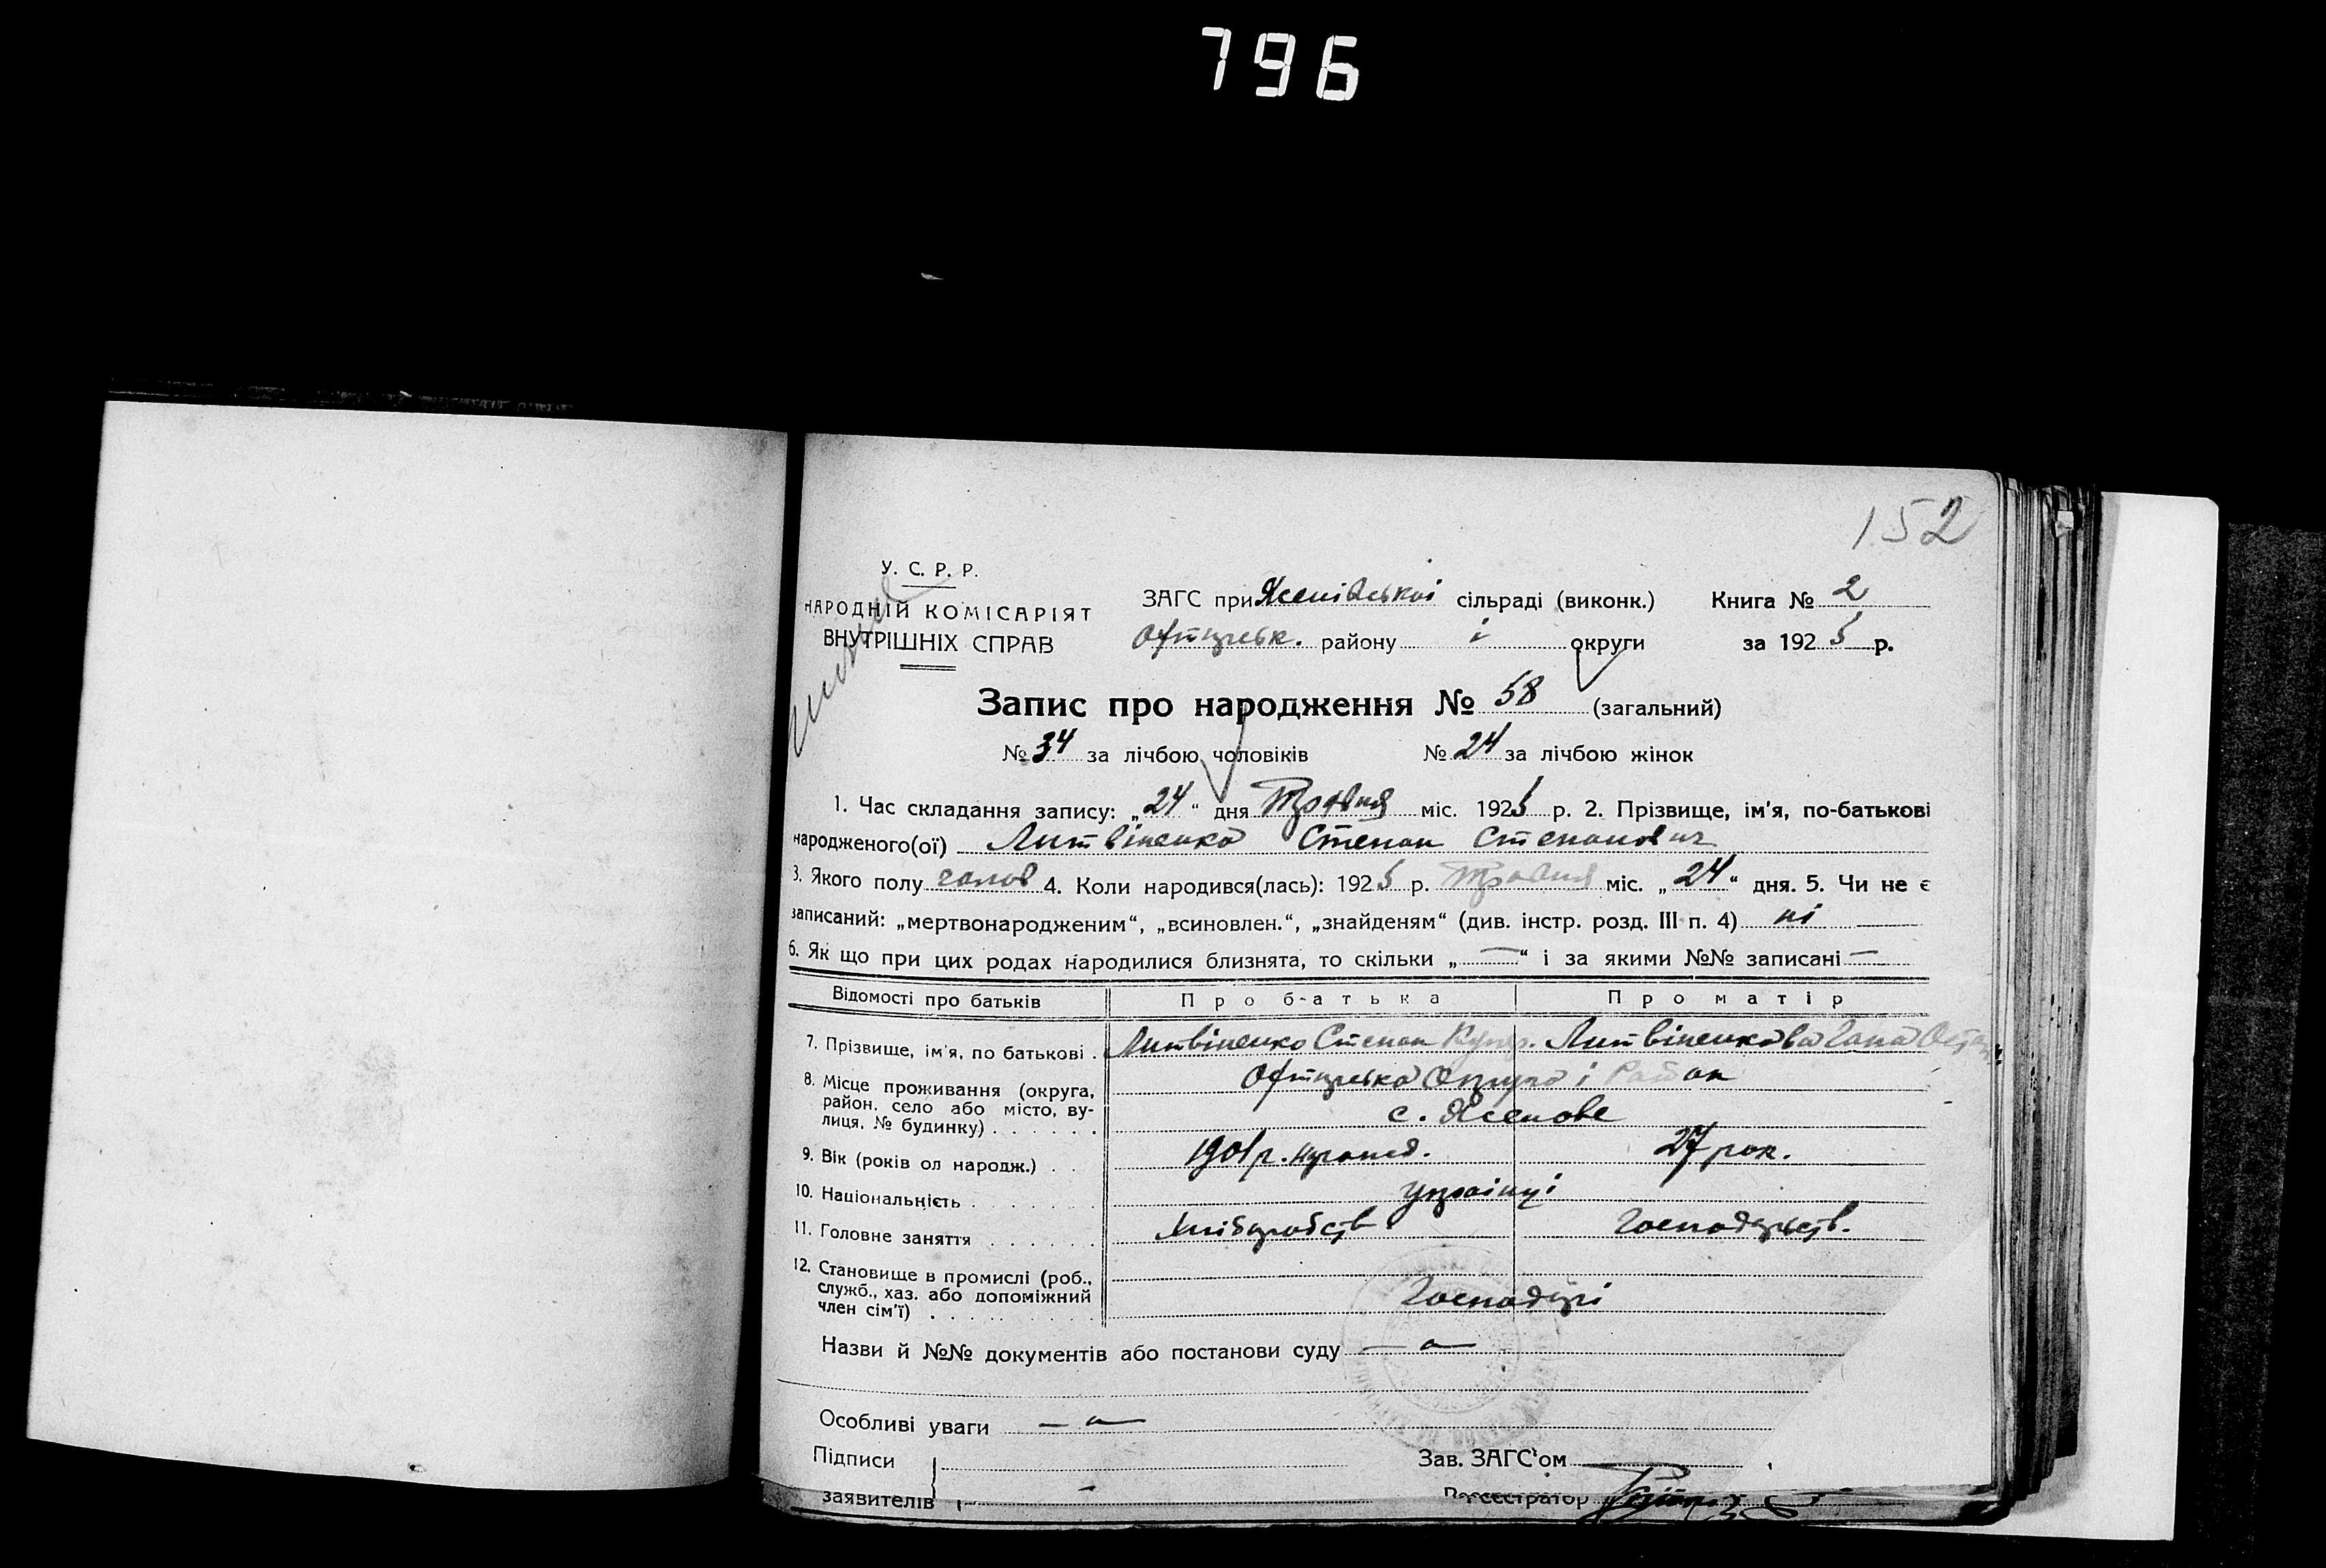 796
152
У. С. Р. Р.
НАРОДНІЙ КОМІСАРІЯТ
ВНУТРІШНІХ СПРАВ
ЗАГС при Ясенівській сільраді (виконк.) Книга № 2
району і округи за 1925 р.
Запис про народження № 58 (загальний)
№ 34 за лічбою чоловіків № 24 за лічбою жінок
1. Час складання запису: „24" дня Травня міс. 1925 р. 2. Прізвище, ім'я, по-батькові
народженого(ої) Литвіненко Степан Степанович
3. Якого полу чолов 4. Коли народився(лась): 1925 р. Травня міс. „24" дня. 5. Чи не є
записаний: „мертвонародженим", „всиновлен.", „знайденям" (див. інстр. розд. III п. 4) ні
6. Як що при цих родах народилися близнята, то скільки „—" і за якими №№ записані —
Відомості про батьків Про б-атька Про матір
7. Прізвище, ім'я, по батькові . Литвіненко Степан Литвіненкова Гана
8. Місце проживання (округа, Округа і Район
район, село або місто, ву-
лиця, № будинку) . . . . . . с. Ясенове
9. Вік (років ол народж.) . . 1901 р. 27 рок.
10. Національність . . . . . . . українці
11. Головне заняття . . . . . .
12. Становище в промислі (роб.,
служб., хаз. або допоміжний
член сім'ї) . . . . . . . . . . Господарі
Назви й №№ документів або постанови суду
Особливі уваги
Підписи
заявителів
Зав. ЗАГС'ом
Реєстратор